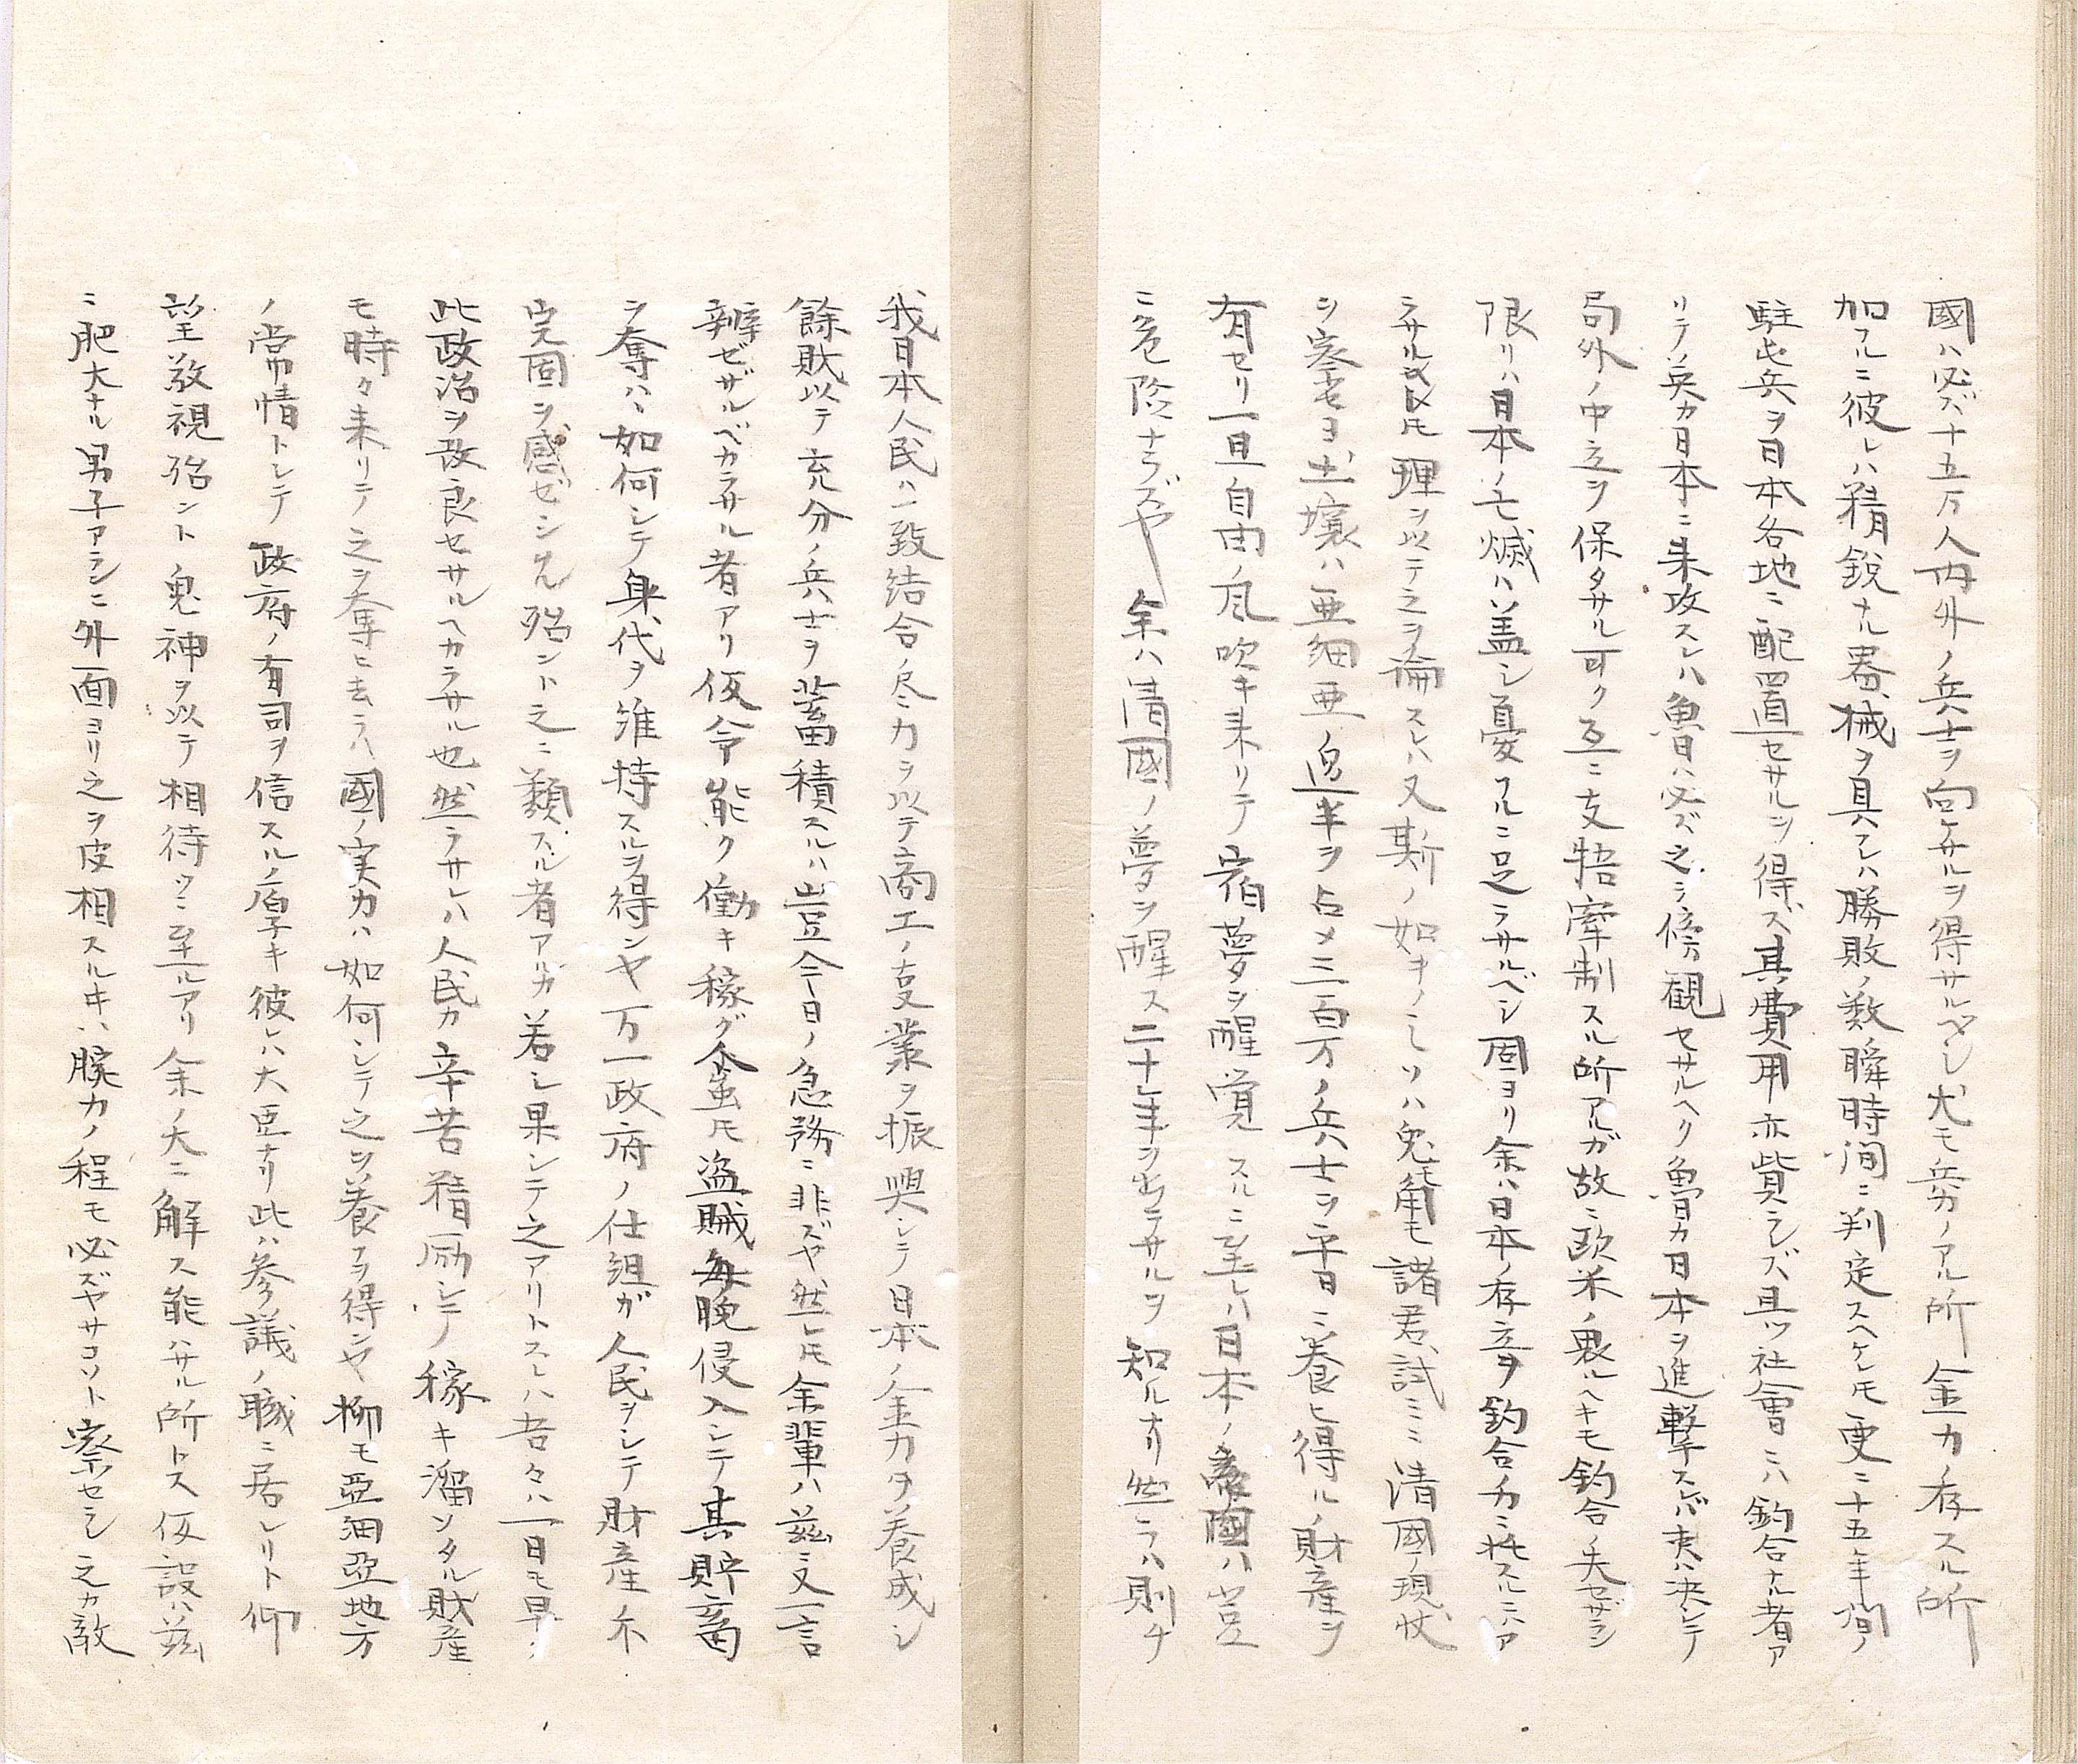 國ハ必ズ十五万人内外ノ兵士ヲ向ケサルヲ得サルベシ尤モ兵力ノアル所金力ノ存スル所
加フルニ彼レハ精鋭ナル器械ヲ具フレハ勝敗ノ数ノ瞬時間ニ判定スヘケレ𪜈更ニ十五年間ノ
駐屯兵ヲ日本各地ニ配置セサルヲ得ズ其費用亦貲ラレズ且ツ社會ニハ釣合ナル者ア
リテ英カ日本ニ来攻スレハ魯ハ必ズ之ヲ傍観セサルヘク魯カ日本ヲ進撃スレバ英ハ決シテ
局外ノ中立ヲ保タサル可ク互ニ支牾牽制スル所アルガ故ニ欧米ノ裏ルヘキモ釣合ノ失セザル
限リハ日本ノ亡滅ハ盖シ憂フルニ足ラサルベシ固ヨリ余ハ日本ノ存立ヲ釣合力ニ托スルニハア
ラサル𪜈理ヲ以テ之ヲ論スレハ又斯ノ如キノミソハ兎モ角モ諸君試ミニ清國ノ現状
ヲ察セヨ土壌ハ亜細亜ノ過半ヲ占メ三百万ノ兵士ヲ平日ニ養ヒ得ルノ財産ヲ
有セリ一旦自由ノ風吹キ来リテ宿夢ヲ醒覚スルニ至レハ日本ノ國ハ豈
ニ危険ナラズヤ余ハ清國ノ夢ヲ醒ス二十年ヲ出テサルヲ知ルナリ然ラハ則チ
我日本人民ハ一致結合ノ尽力ヲ以テ商工ノ事業ヲ振興シテ日本ノ金力ヲ養成シ
餘財以テ充分ノ兵士ヲ蓄積スルハ豈今日ノ急務ニ非ズヤ然レ𪜈余輩ハ茲ニ又一言
辨ゼザルベカラサル者アリ仮令能ク働キ稼グ企虽𪜈盗賊毎晩侵入シテ其貯蓄
ヲ奪ハヽ如何シテ身代ヲ維持スルヲ得ンヤ万一政府ノ仕組ガ人民ヲシテ財産不
完固ヲ感ゼシムル殆ント之ニ類スル者アルカ若シ果シテ之アリトスレハ吾々ハ一日モ早ク
此政治ヲ改良セサルヘカラサル也然ラサレハ人民カ辛苦精励シテ稼キ溜ソタル財産
モ時々来リテ之ヲ奪ヒ去ラハ國ノ実力ハ如何シテ之ヲ養フヲ得ンヤ抑モ亞細亞地方
ノ常情トシテ政府ノ有司ヲ信スルノ厚キ彼レハ大臣ナリ此ハ参議ノ職ニ居レリト仰
望敬視殆ント鬼神ヲ以テ相待ツニ至ルアリ余ノ大ニ解ス能ハサル所トス仮設ハ茲
ニ肥大ナル男子アランニ外面ヨリ之ヲ皮相スルヰハ腕力ノ程モ必ズヤサコソト察セシ之カ敵